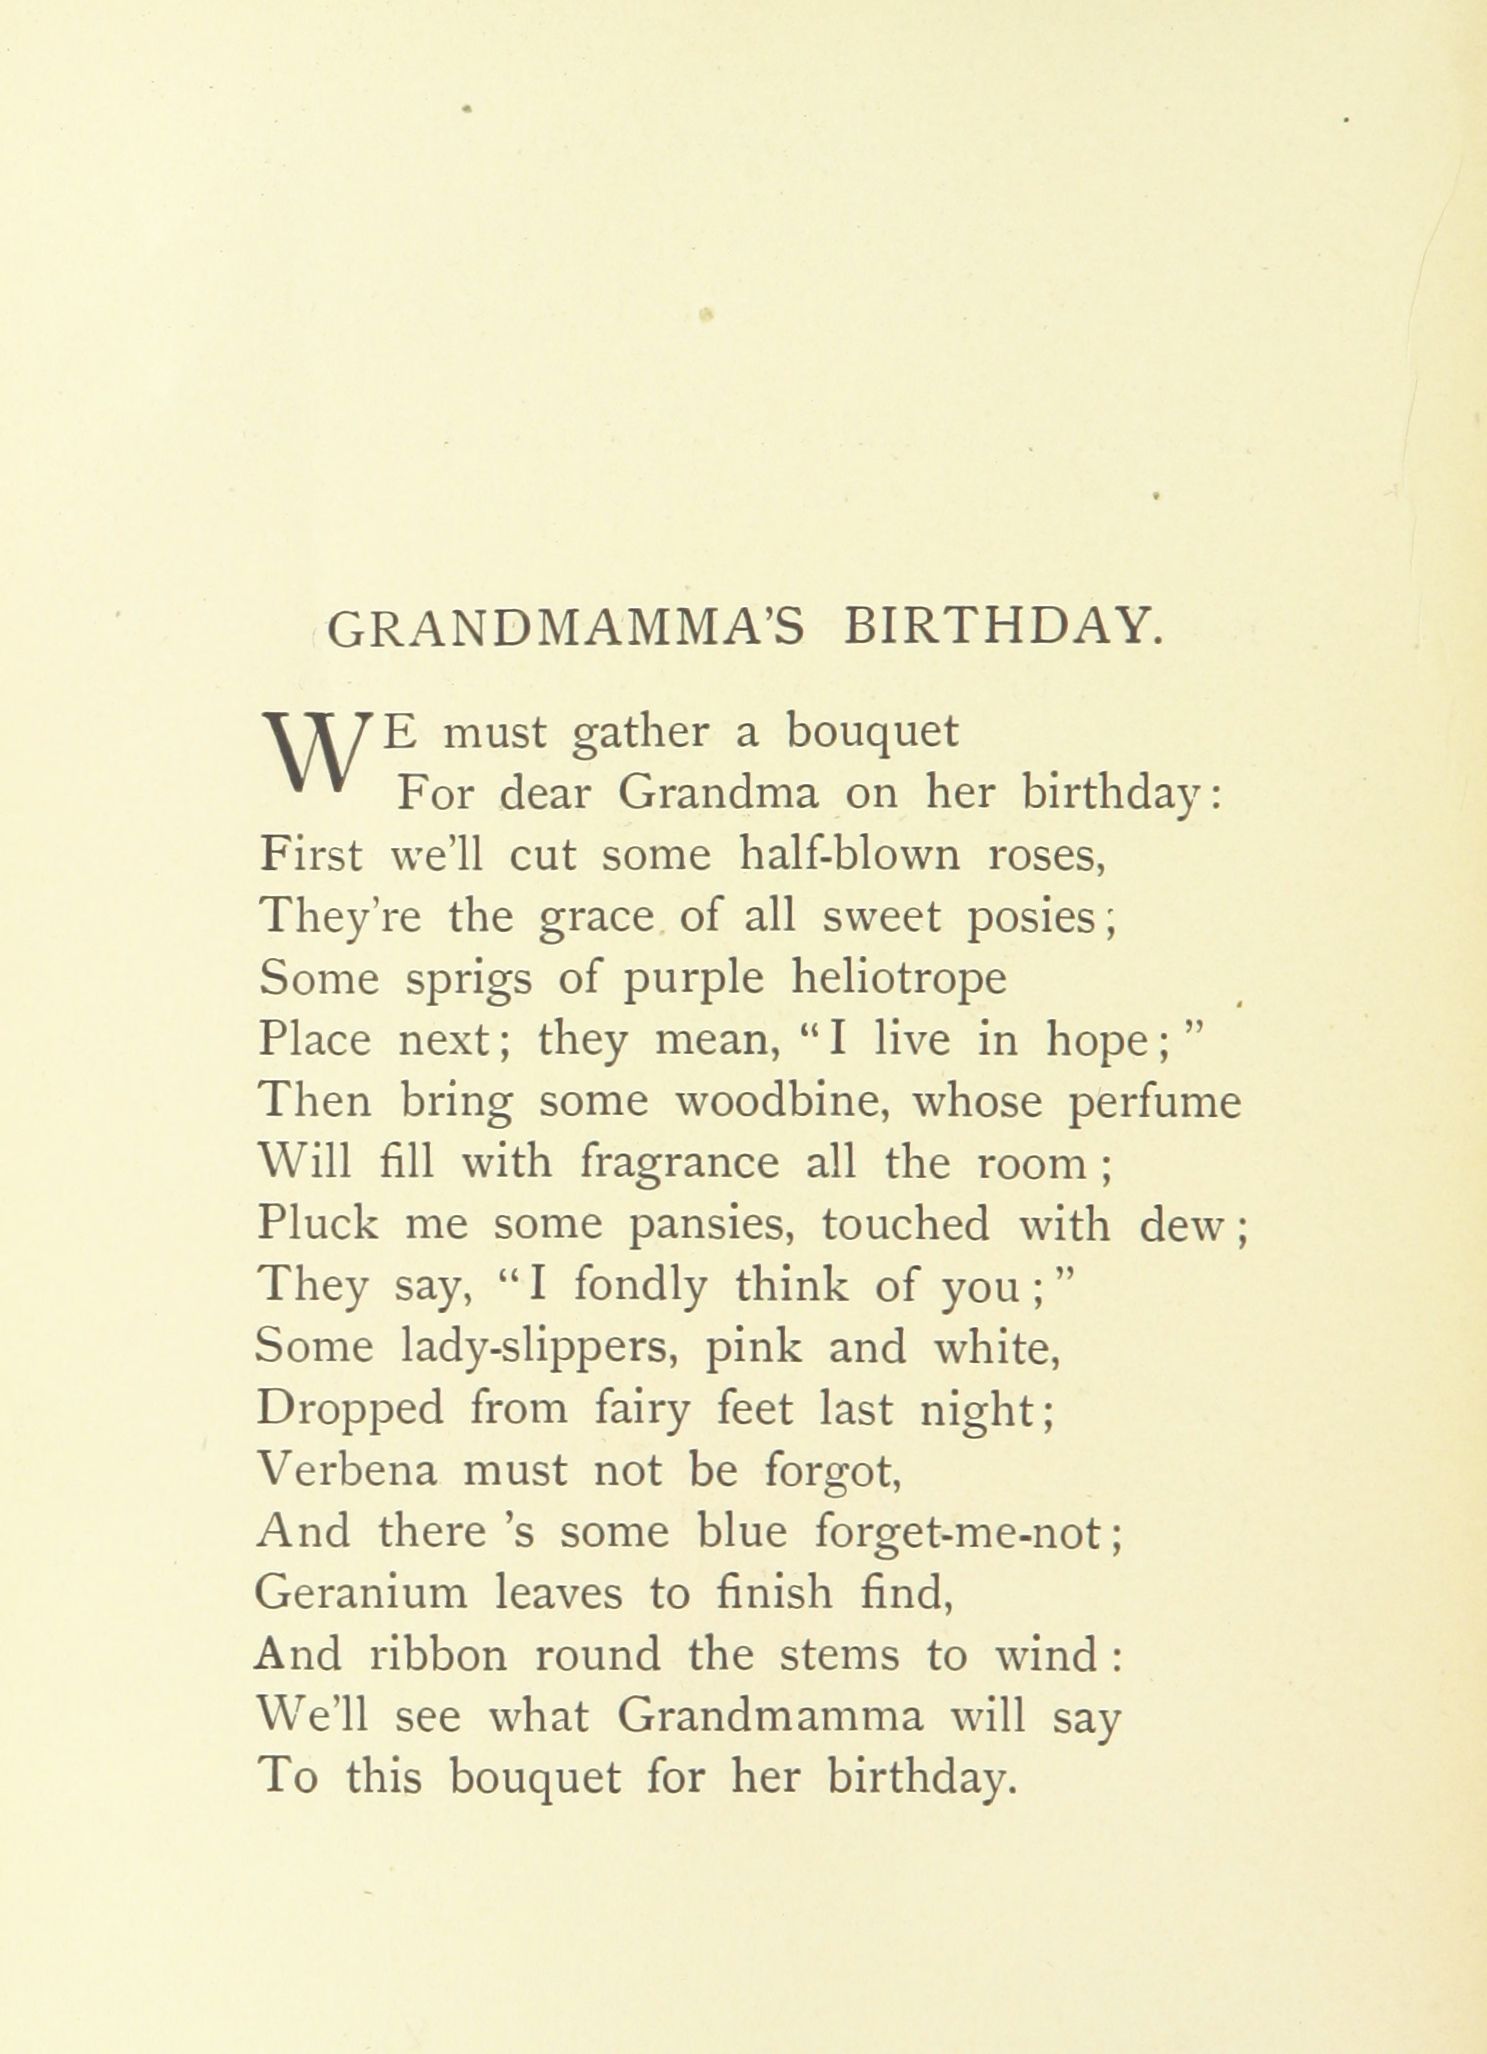 GRANDMAMMA'S BIRTHDAY.
WE must gather a bouquet
For dear Grandma on her birthday:
First we'll cut some half-blown roses,
They're the grace of all sweet posies;
Some sprigs of purple heliotrope
Place next; they mean, “I live in hope;”
Then bring some woodbine, whose perfume
Will fill with fragrance all the room;
Pluck me some pansies, touched with dew;
They say, “I fondly think of you;”
Some lady-slippers, pink and white,
Dropped from fairy feet last night;
Verbena must not be forgot,
And there 's some blue forget-me-not;
Geranium leaves to finish find,
And ribbon round the stems to wind:
We'll see what Grandmamma will say
To this bouquet for her birthday.